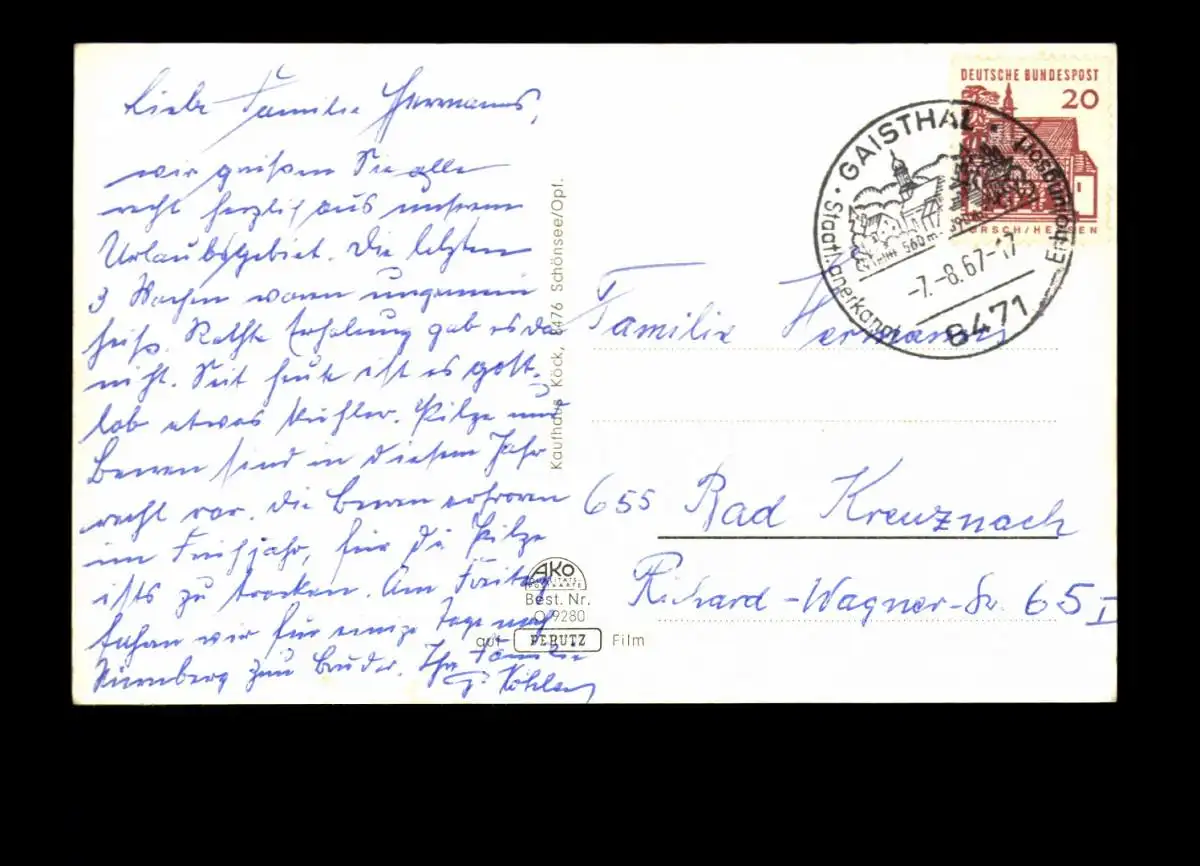 Liebe Familie Hermanns,
wir grüßen Sie alle
recht herzlich aus unserem
Urlaubsgebiet. Die letzten
3 Wochen waren ungemein
heiß. Rechte Erholung gab es da
nicht. Seit heute ist es gott-
lob etwas kühler. Pilze und
Beeren sind in diesem Jahr
recht rar. Die Beeren erfroren
im Frühjahr, für die Pilze
ists zu trocken. Am Freitag
fahren wir für einige Tage nach
Nürnberg zum Bruder. Ihre Familie
G. Köhler
Kaufhaus Köck, 8476 Schönsee/Opf.
AKO
QUALITÄTS-
POSTKARTE
Best. Nr.
O 9280
auf PERUTZ Film
DEUTSCHE BUNDESPOST
20
LORSCH/HESSEN
GAISTHAL
Staatl. anerkannt. Erholungsort
560 m
-7.-8.67-17
8471
Familie Hermanns
655 Bad Kreuznach
Richard-Wagner-Str. 65 I